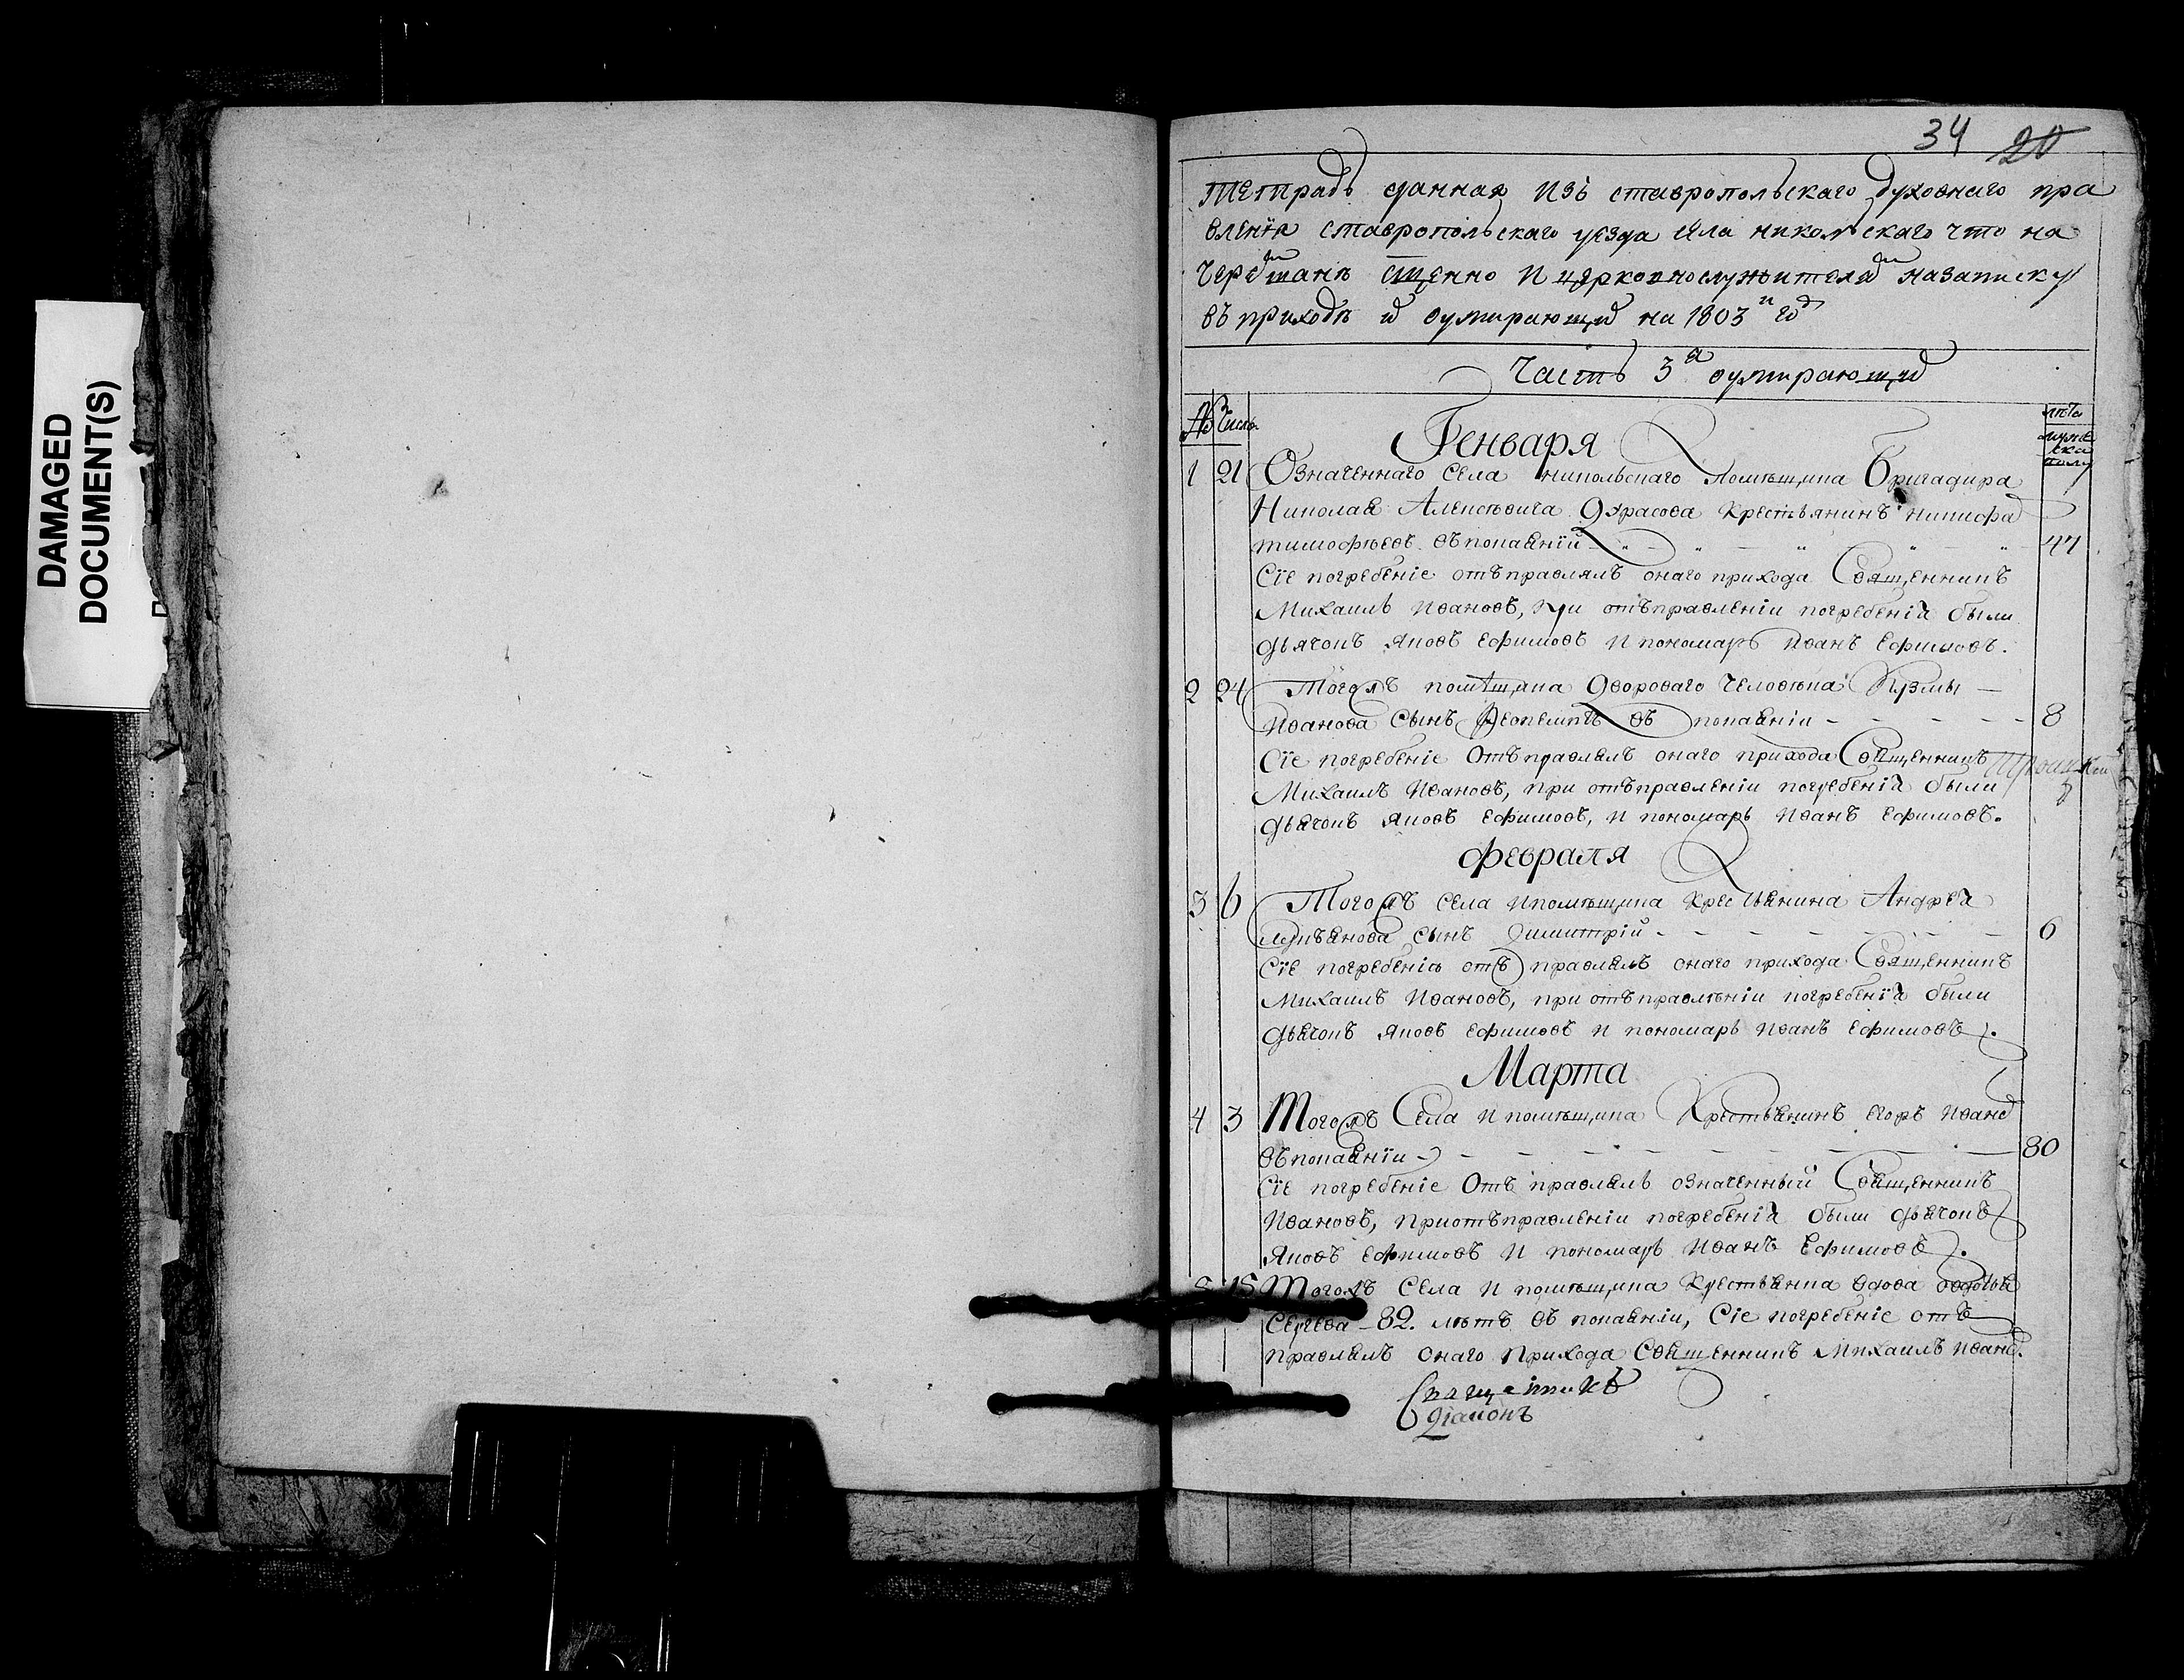 DAMAGED
DOCUMENT(S)
34 20
тетрадь данная изъ ставропольскаго духовнаго пра
вленїя ставропольскаго уезда села никольскаго что на
черемшанѣ сщенно и церковнослужителем назаписку
въ приходѣ о оумирающих на 1803й год
Часть 3я оумирающих
№ Числа
лѣта
мужеска полу
Генваря
1 21 Означеннаго Села никольскаго Помѣщика Бригадира
Николая Алексѣевича Дурасова крестьянинъ никифор
тимофѣевъ въ покаянїи 47
Сїе погребенїе отъправлялъ онаго прихода Священникъ
Михаилъ Ивановъ, при отъправленїи погребенїя были
дьячокъ Яковъ Ефимовъ и пономарь Иванъ Ефимовъ.
2 24 Тогожъ помѣщика двороваго человѣка Кузмы
Иванова Сынъ въ покаянїи 8
Сїе погребенїе Отъправлялъ онаго прихода Священникъ
Михаилъ Ивановъ, при отъправленїи погребенїя были
дьячокъ Яковъ Ефимовъ, и пономарь Иванъ Ефимовъ.
Февраля
3 6 Тогожъ Села и помѣщика крестьянина Андрея
лукьянова сынъ димитрїй 6
Сїе погребенїе отъправлялъ онаго прихода Священникъ
Михаилъ Ивановъ, при отъправлѣнїи погребенїя были
дьячокъ Яковъ Ефимовъ и пономарь Иванъ Ефимовъ.
Марта
4 3 Тогожъ Села и помѣщика Крестьянинъ Егоръ Иванов
въ покаянїи 80
Сїе погребенїе Отъ правлялъ означенный Священникъ
Ивановъ, при отъправленїи погребенїя были дьячокъ
Яковъ Ефимовъ и пономарь Иванъ Ефимовъ.
5 15 Тогожъ Села и помѣщика Крестьянка вдова
Сергѣева 82. лѣтъ въ покаянїи, Сїе погребенїе отъ
правлялъ онаго прихода Священникъ Михаилъ Иванов.
Священникъ
Діаконъ